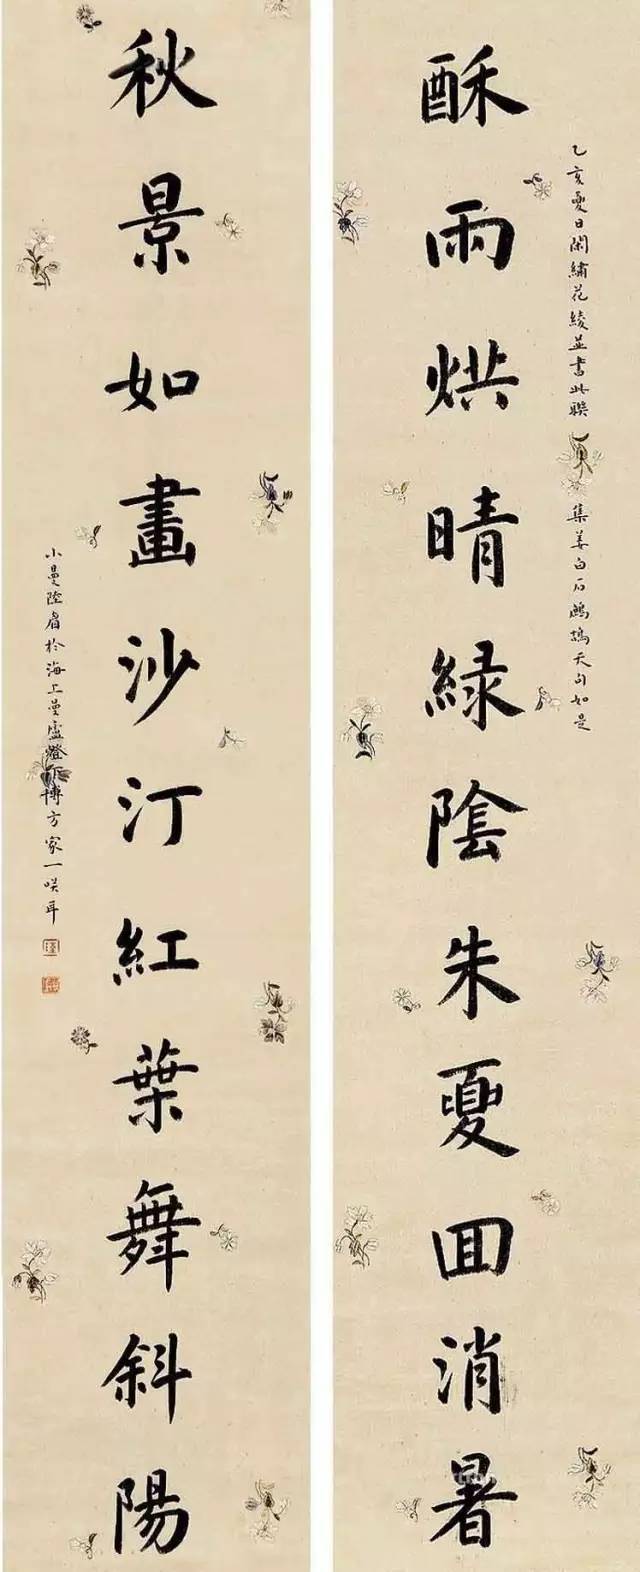 酥雨烘晴綠陰朱夏回消暑
乙亥夏日閑繡花綾並書此聯
集姜白石鷓鴣天句如是
秋景如畫沙汀紅葉舞斜陽
小曼陸眉於海上曼廬燈下博方家一咲耳